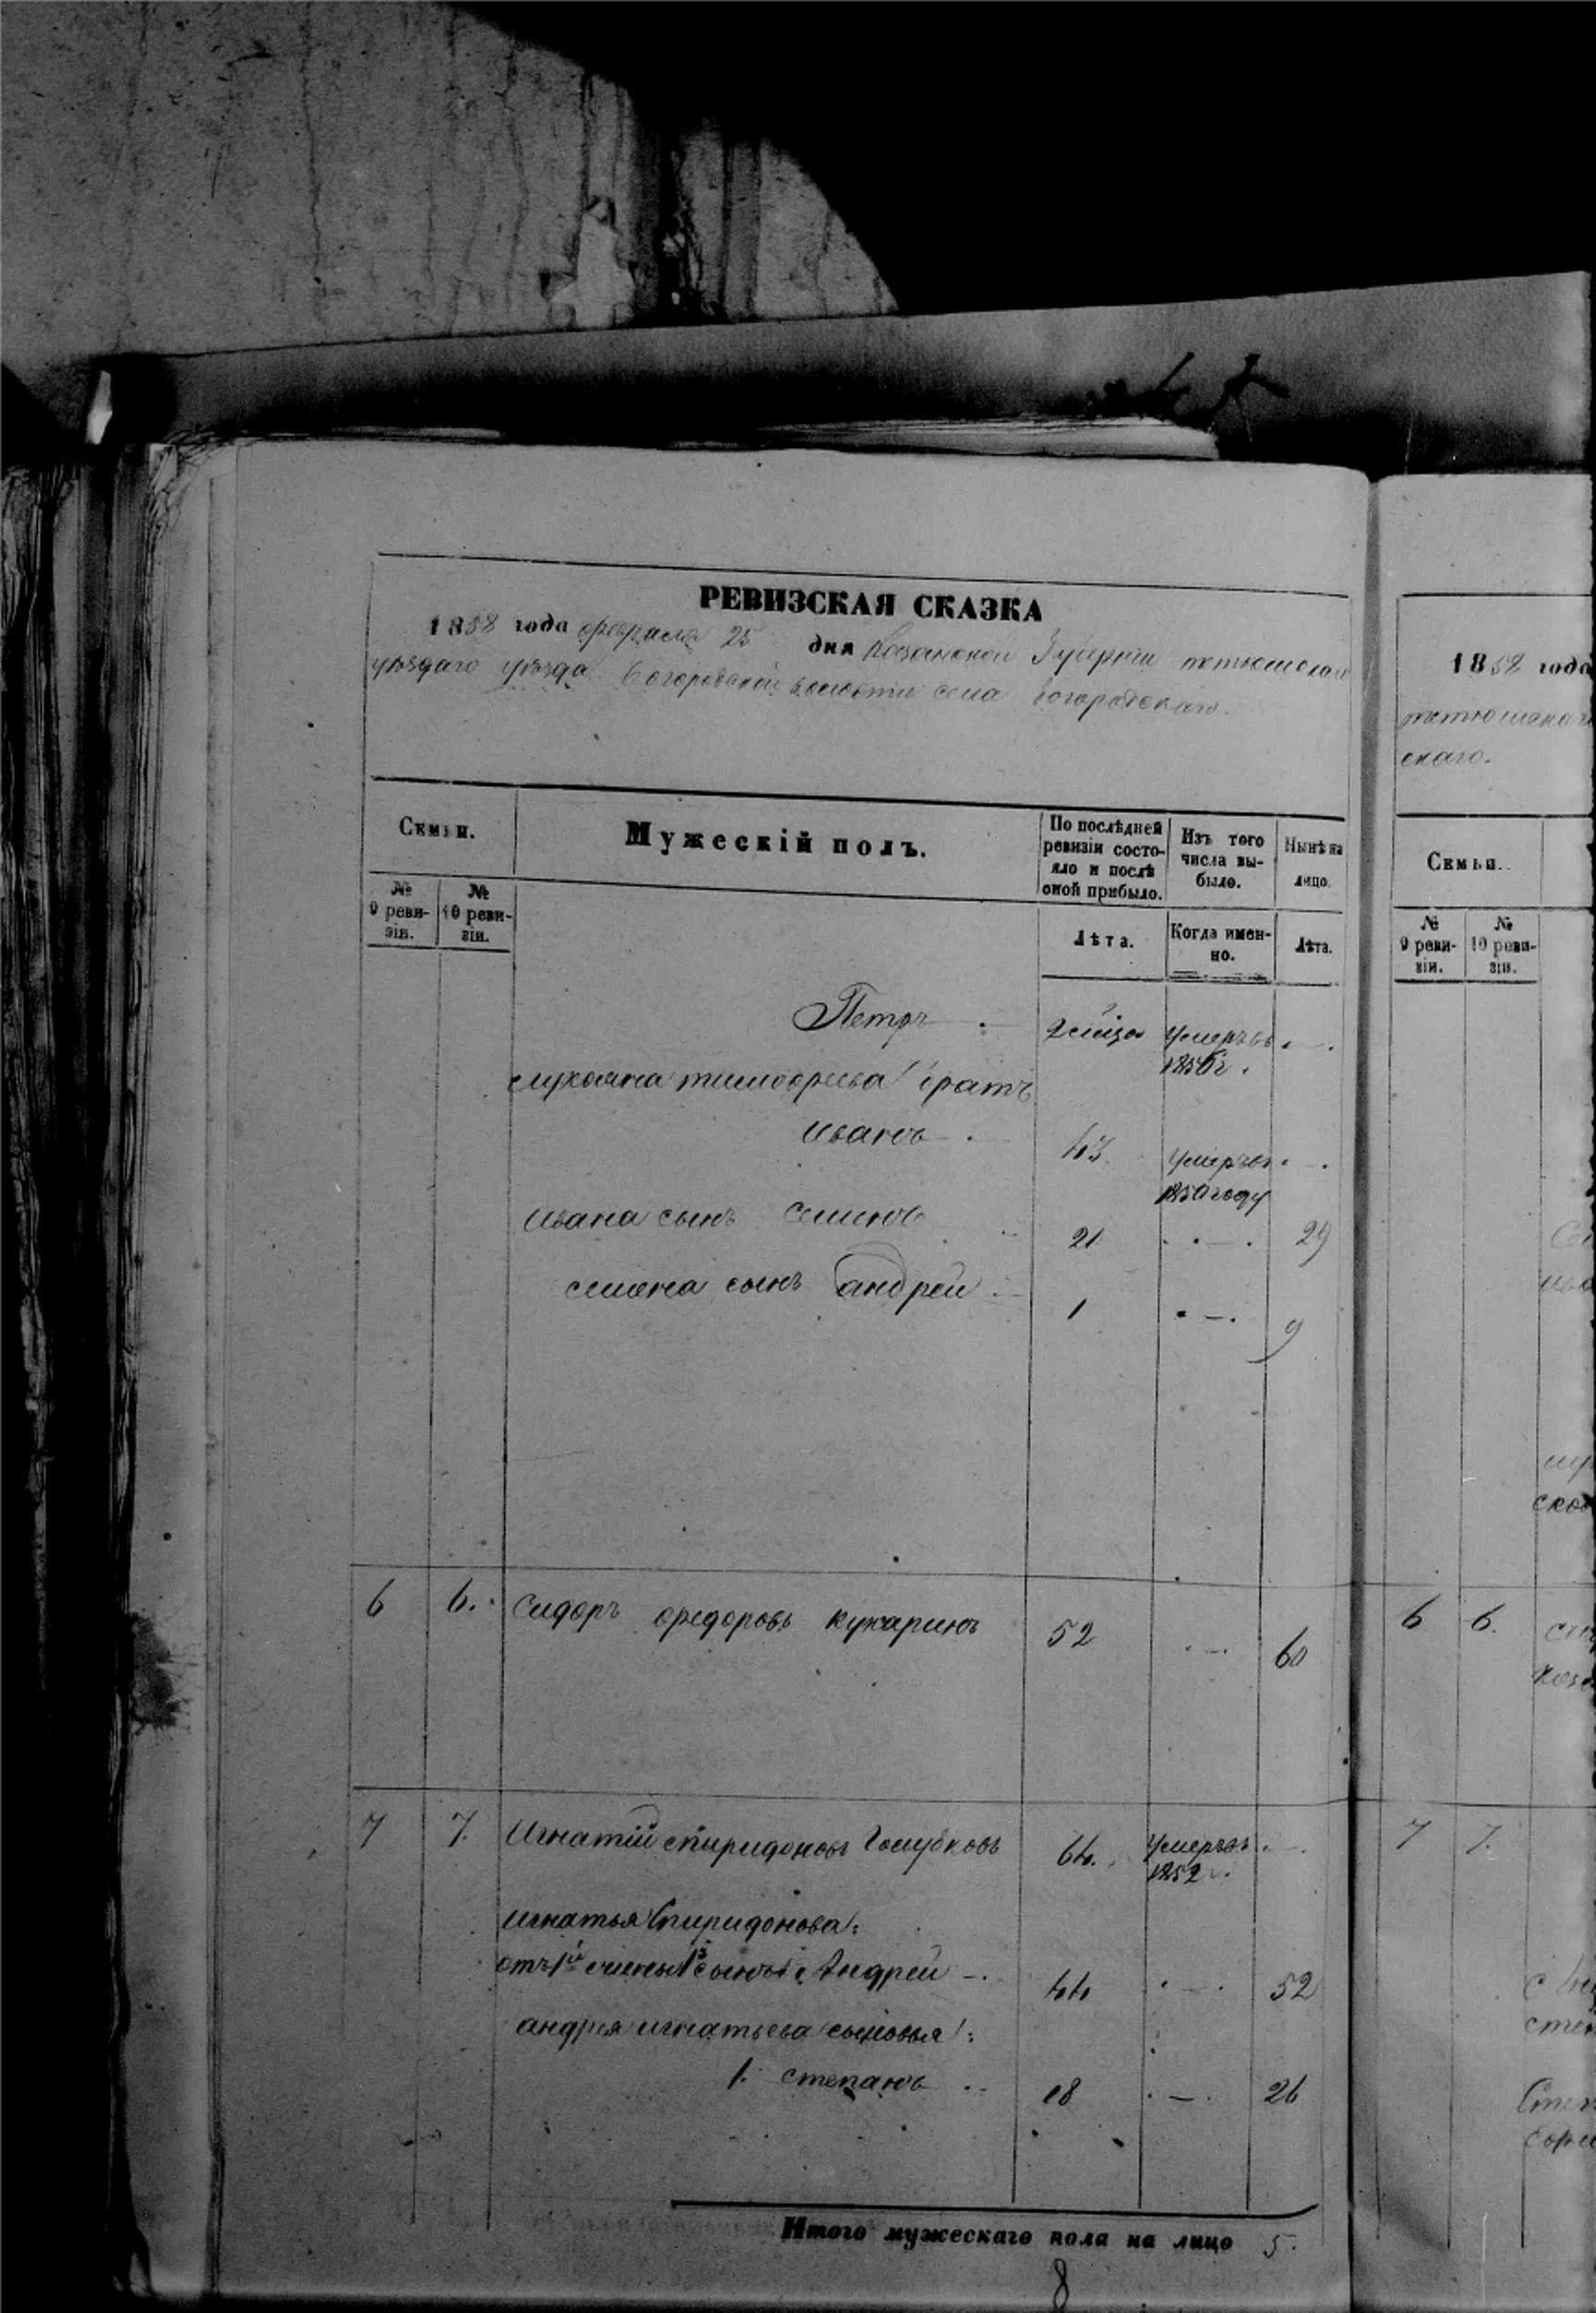 РЕВИЗСКАЯ СКАЗКА
1858 года февраля 25 дня Казанской Губернии тетюшскаго
уѣзда Богородской волости села Богородскаго.
Семьи.
Мужескій полъ.
По послѣдней ревизіи состояло и послѣ оной прибыло.
Изъ того числа выбыло.
Нынѣ на лицо.
№ 9 ревизіи.
№ 10 ревизіи.
Лѣта.
Когда именно.
Лѣта.
Петръ 2 умеръ въ
185 г.
тимофеева братъ
Иванъ 43 умеръ въ
1850 году
Ивана сынъ Семенъ 21 29
семена сынъ андрей 1 9
6 6. Сидоръ федоровъ кукаринъ 52 60
7 7. Игнатій спиридоновъ Голубковъ 64. умеръ въ
1852 г.
игнатья Спиридонова:
отъ 1й жены 1й сынъ Андрей 44 52
андрея игнатьева сыновья:
1. степанъ 18 26
Итого мужескаго пола на лицо 5.
8
1858 года
тетюшскаго
скаго.
Семьи.
№ 9 ревизіи.
№ 10 ревизіи.
6 6.
7 7.